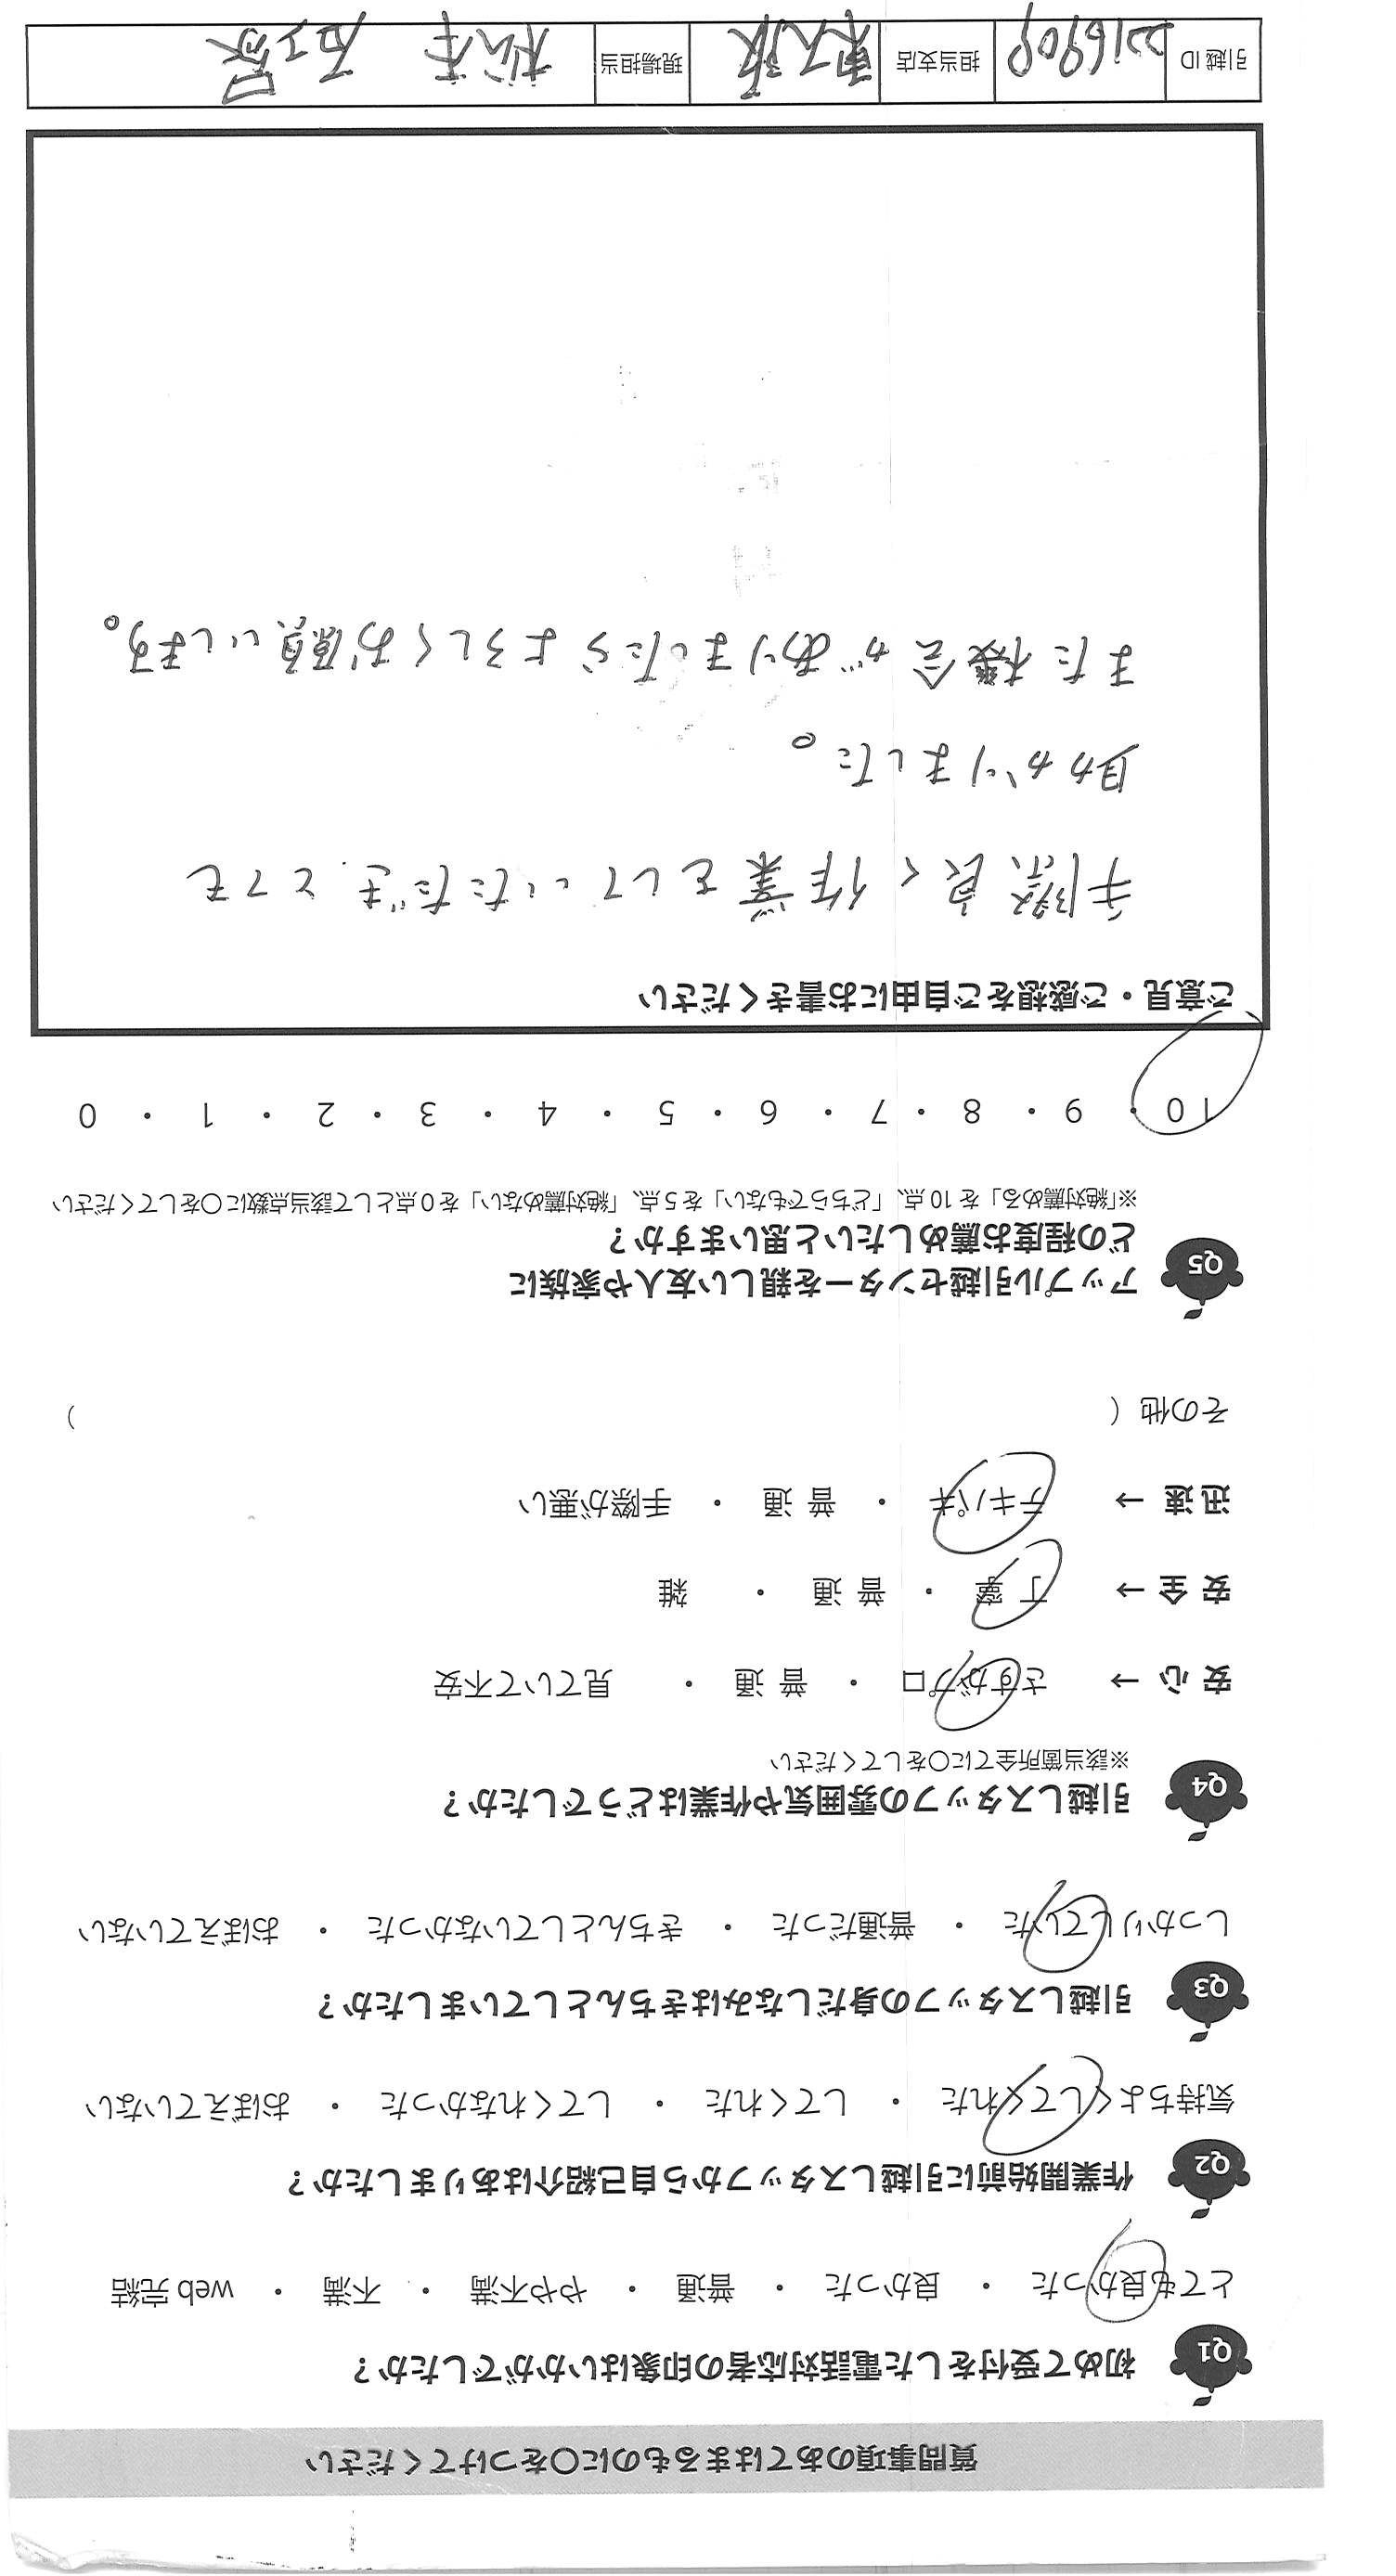 質問事項のあてはまるものに〇をつけてください
Q1 初めて受付をした電話対応者の印象はいかがでしたか？
とても良かった ・ 良かった ・ 普通 ・ やや不満 ・ 不満 ・ web 完結
Q2 作業開始前に引越しスタッフから自己紹介はありましたか？
気持ちよくしてくれた ・ してくれた ・ してくれなかった ・ おぼえていない
Q3 引越しスタッフの身だしなみはきちんとしていましたか？
しっかりしていた ・ 普通だった ・ きちんとしていなかった ・ おぼえていない
Q4 引越しスタッフの雰囲気や作業はどうでしたか？
※該当箇所全てに〇をしてください
安 心 → さすがプロ ・ 普 通 ・ 見ていて不安
安 全 → 丁 寧 ・ 普 通 ・ 雑
迅 速 → テキパキ ・ 普 通 ・ 手際が悪い
その他（ ）
Q5 アップル引越センターを親しい友人や家族に
どの程度お薦めしたいと思いますか？
※「絶対薦める」を 10 点、「どちらでもない」を 5 点、「絶対薦めない」を 0 点として該当点数に〇をしてください
10 ・ 9 ・ 8 ・ 7 ・ 6 ・ 5 ・ 4 ・ 3 ・ 2 ・ 1 ・ 0
ご意見・ご感想をご自由にお書きください
手際良く作業をしていただき、とても
助かりました。
また機会がありましたらよろしくお願いします。
引越 ID 2216909 担当支店 東大阪 現場担当 松本